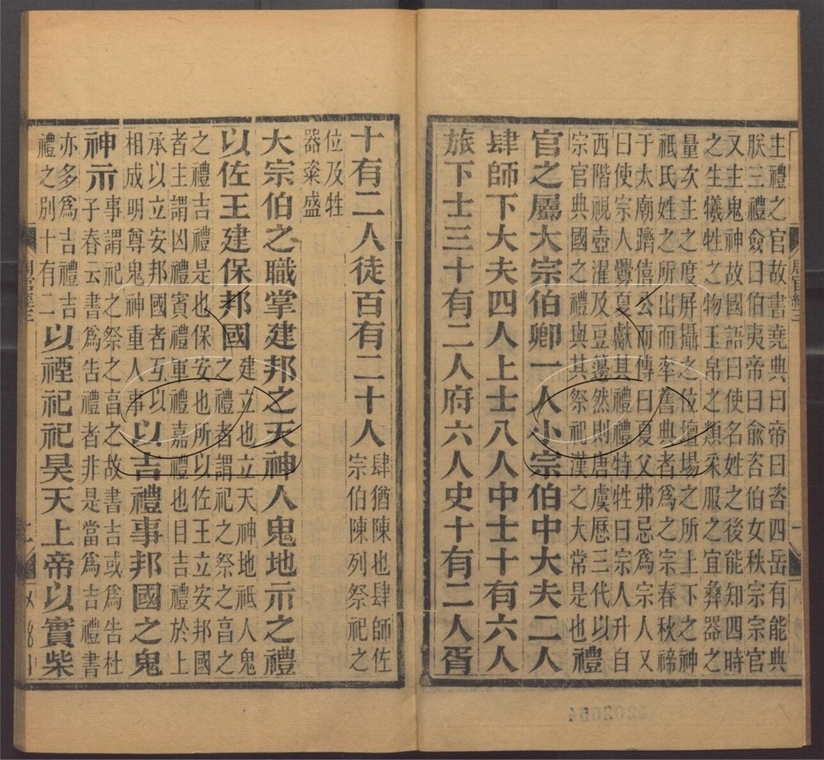 主禮之官故書堯典曰帝曰咨四岳有能典
朕三禮僉曰伯夷帝曰俞咨伯女秩宗宗官
又主鬼神故國語曰使名姓之後能知四時
之生犧牲之物玉帛之類采服之宜彝器之
量次主之度屏攝之位壇場之所上下之神
祇氏姓之所出而率舊典者爲之宗春秋禘
于太廟躋僖公而傳曰夏父弗忌爲宗人又
曰使宗人釁夏獻其禮禮特牲曰宗人升自
西階視壺濯及豆籩然則唐虞歷三代以
宗官典國之禮與其祭祀漢之大常是也禮
官之屬大宗伯卿一人小宗伯中大夫二人
肆師下大夫四人上士八人中士十有六人
旅下士三十有二人府六人史十有二人胥
十有二人徒百有二十人
肆猶陳也肆師佐
宗伯陳列祭祀之
位及牲
器粢盛
大宗伯之職掌建邦之天神人鬼地示之禮
以佐王建保邦國
建立也立天神地祇人鬼
之禮者謂祀之祭之亯之
之禮吉禮是也保安也所以佐王立安邦國
者主謂凶禮賓禮軍禮嘉禮也目吉禮於上
承以立安邦國者互以
相成明尊鬼神重人事
以吉禮事邦國之鬼
神示
事謂祀之祭之亯之故書吉或爲告杜
子春云書爲告禮者非是當爲吉禮書
亦多爲吉禮吉
禮之別十有二
以禋祀祀昊天上帝以實柴